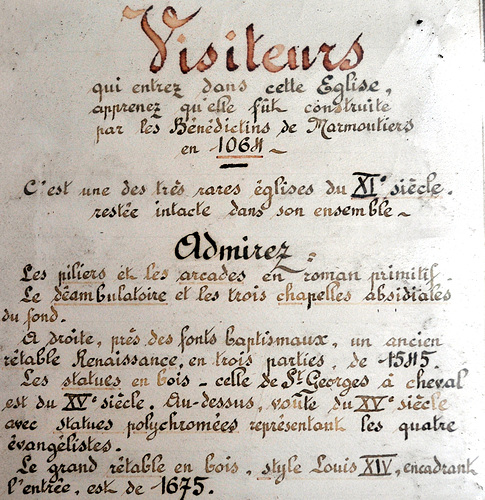 Visiteurs
qui entrez dans cette Eglise,
apprenez qu'elle fût construite
par les Bénédictins de Marmoutiers
en 1064 ~
C'est une des très rares églises du XIe siècle.
restée intacte dans son ensemble ~
Admirez :
Les piliers et les arcades en roman primitif.
Le déambulatoire et les trois chapelles absidiales
du fond.
A droite, près des fonts baptismaux, un ancien
rétable Renaissance, en trois parties, de 1545.
Les statues en bois - celle de St Georges à cheval
est du XVe siècle. Au-dessus, voûte du XVe siècle
avec statues polychromées représentant les quatre
évangélistes.
Le grand rétable en bois, style Louis XIV, encadrant
l'entrée, est de 1675.